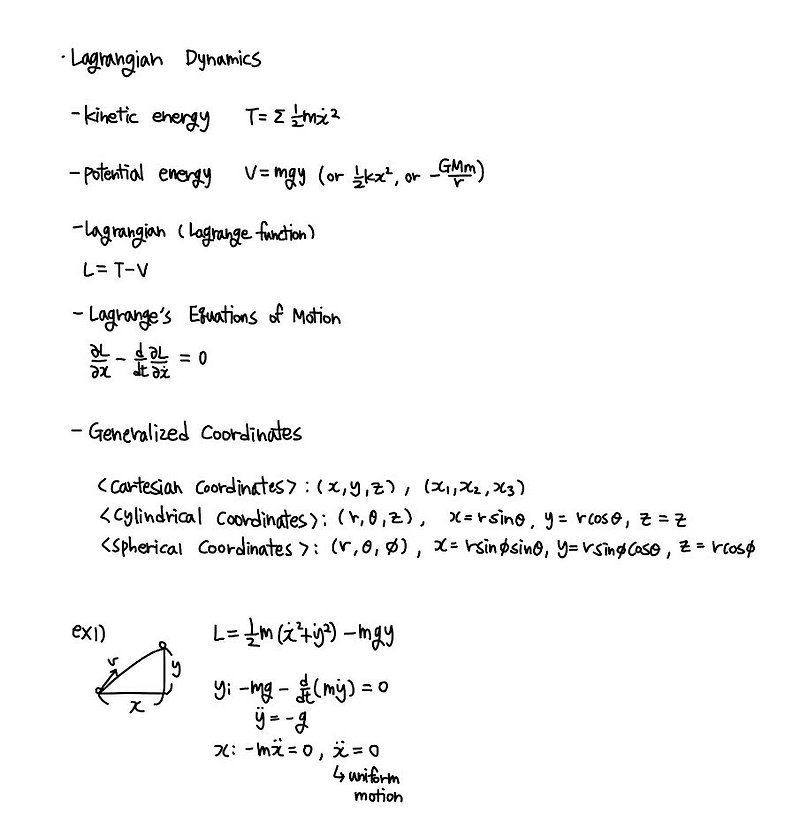 · Lagrangian Dynamics
- kinetic energy T = Σ ½mẋ²
- potential energy V = mgy (or ½kx², or -GMm/r)
- Lagrangian (Lagrange function)
L = T - V
- Lagrange's Equations of Motion
∂L/∂x - d/dt ∂L/∂ẋ = 0
- Generalized Coordinates
<Cartesian Coordinates> : (x, y, z) , (x₁, x₂, x₃)
<Cylindrical Coordinates> : (r, θ, z) , x = rsinθ, y = rcosθ, z = z
<Spherical Coordinates> : (r, θ, ϕ) , x = rsinϕsinθ, y = rsinϕcosθ, z = rcosϕ
ex1) L = ½m(ẋ²+ẏ²) - mgy
v
y
x
y; -mg - d/dt(mẏ) = 0
ÿ = -g
x: -mẍ = 0 , ẍ = 0
↳ uniform
motion